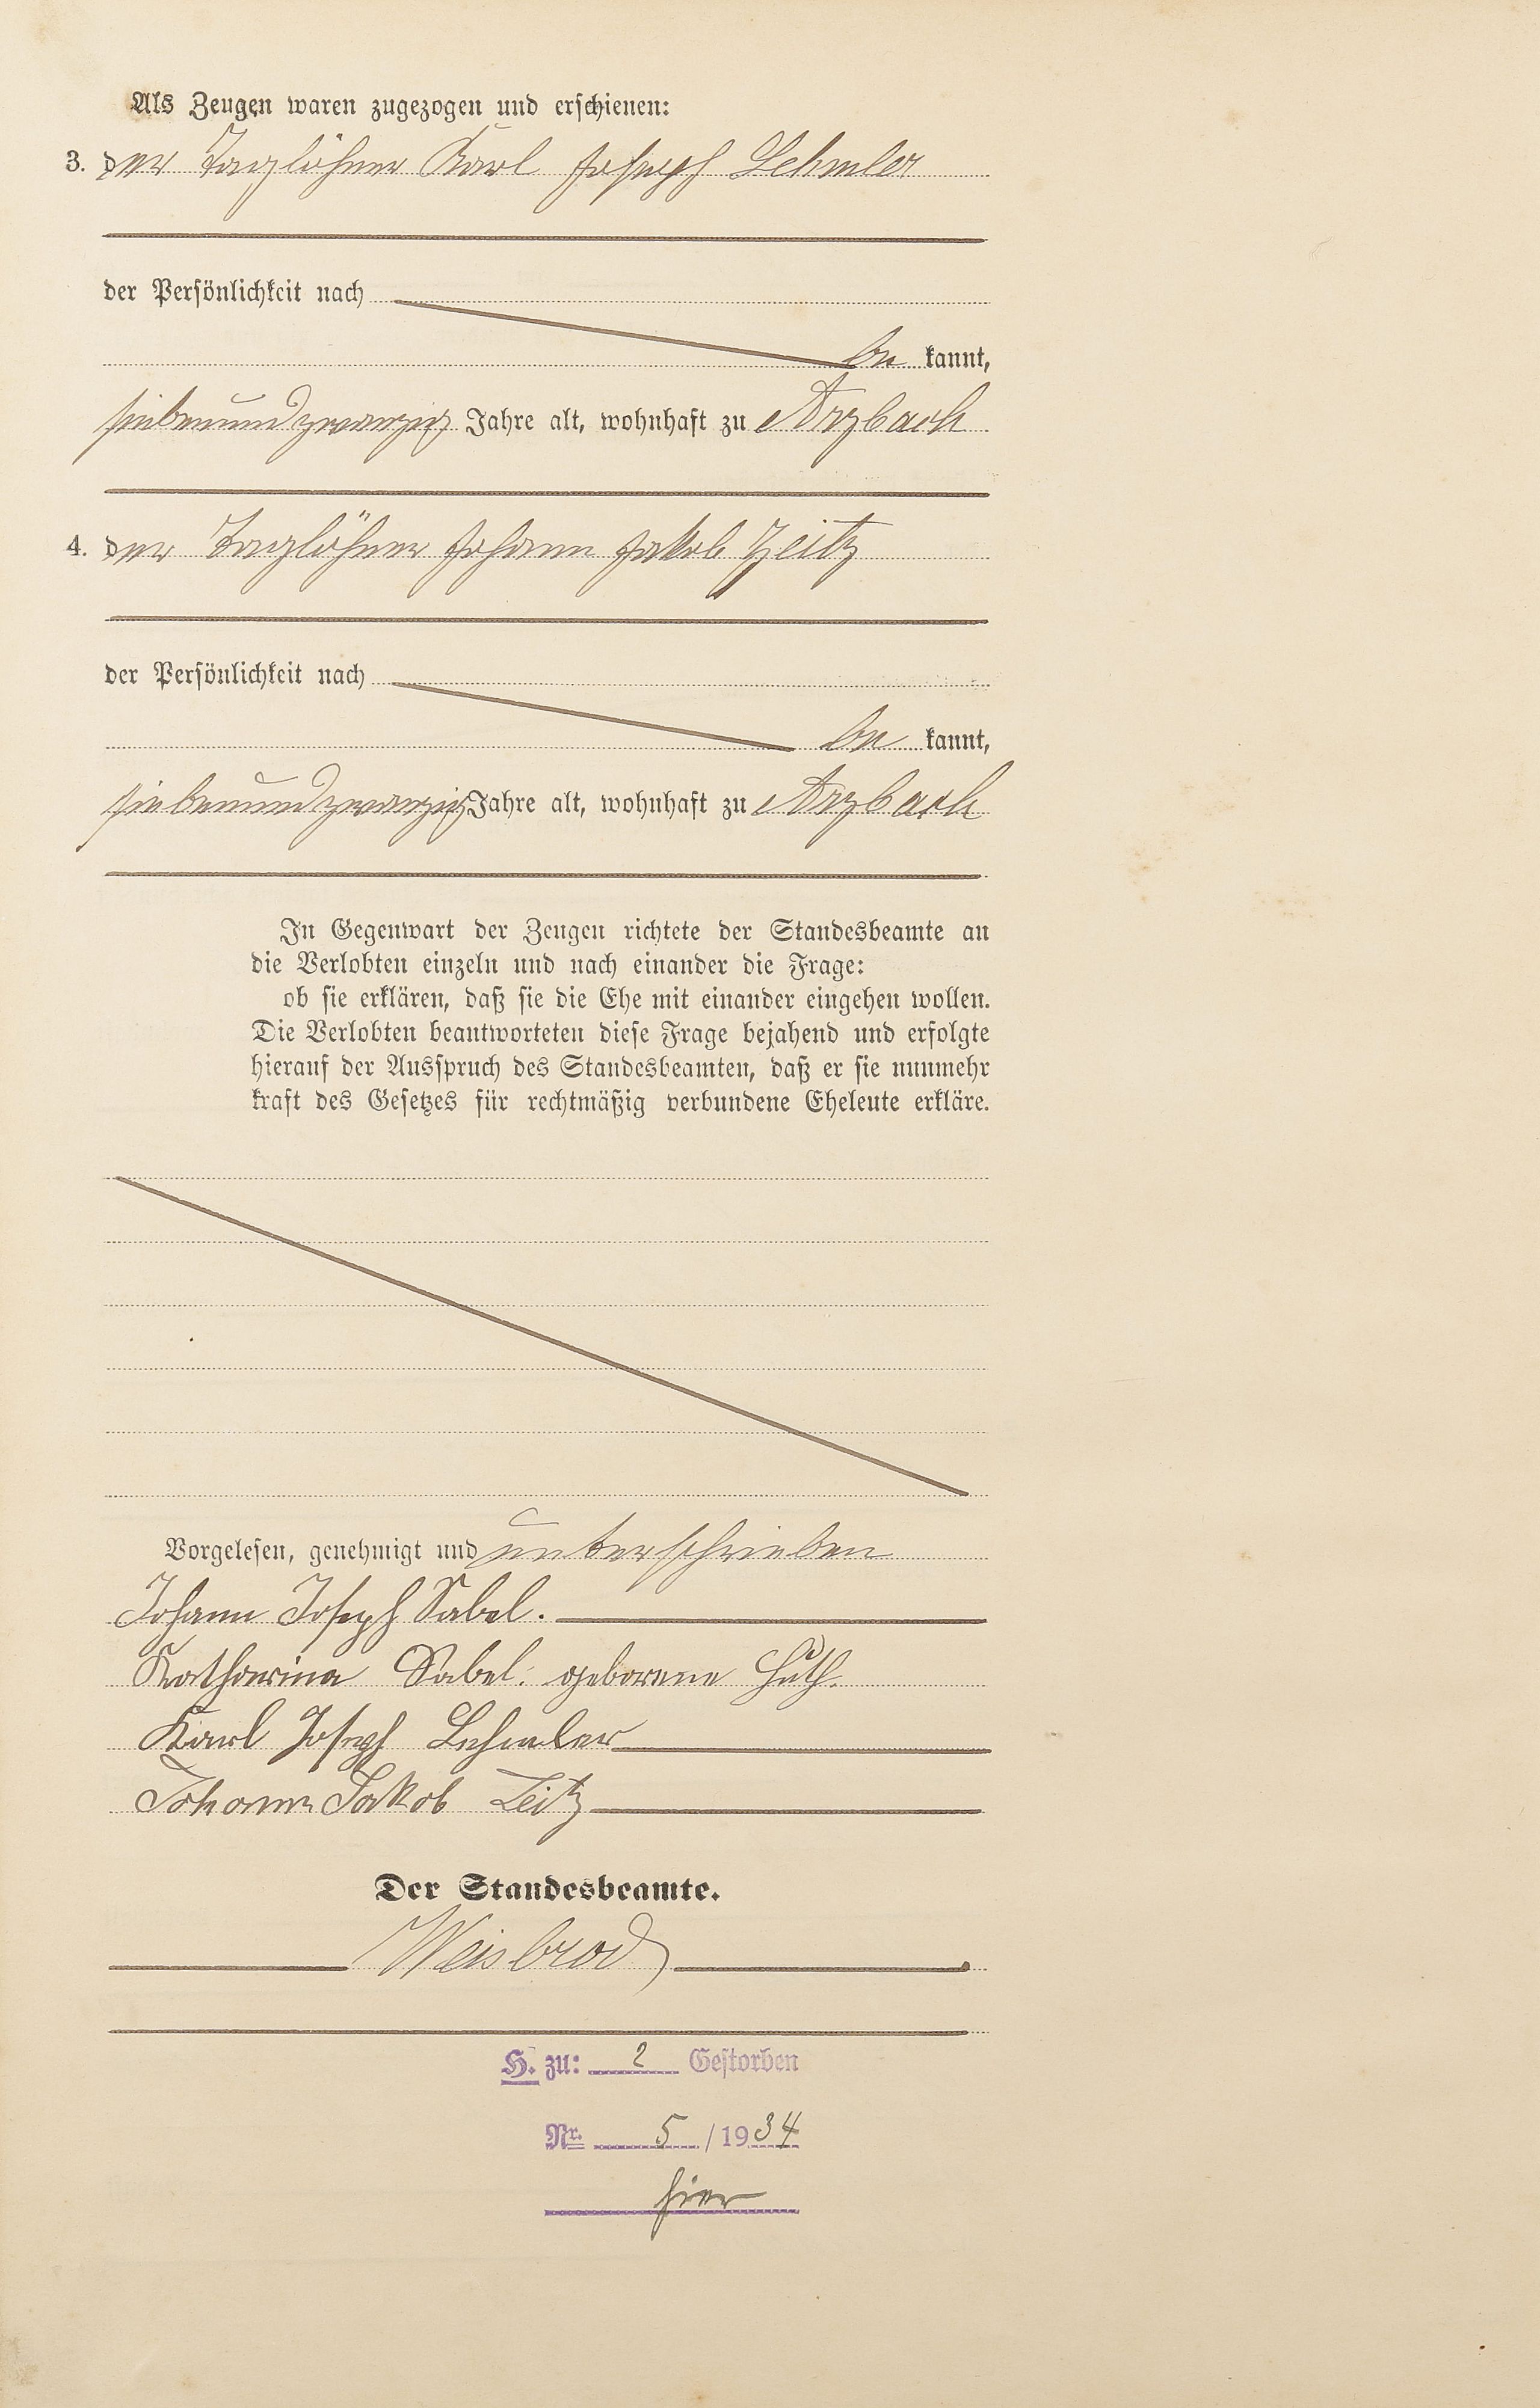 Als Zeugen waren zugezogen und erschienen:
3. der Taglöhner Karl Joseph Lehmler
der Persönlichkeit nach
be kannt,
siebenundzwanzig Jahre alt, wohnhaft zu Arzbach
4. der Taglöhner Johann Jakob Zeitz
der Persönlichkeit nach
be kannt,
siebenundzwanzig Jahre alt, wohnhaft zu Arzbach
In Gegenwart der Zeugen richtete der Standesbeamte an
die Verlobten einzeln und nach einander die Frage:
ob sie erklären, daß sie die Ehe mit einander eingehen wollen.
Die Verlobten beantworteten diese Frage bejahend und erfolgte
hierauf der Ausspruch des Standesbeamten, daß er sie nunmehr
kraft des Gesetzes für rechtmäßig verbundene Eheleute erkläre.
Vorgelesen, genehmigt und unterschrieben
Johann Joseph Sabel.
Katharina Sabel. geborene Huth.
Karl Joseph Lehmler
Johann Jakob Zeitz
Der Standesbeamte.
Weisbrod
H. zu: 2 Gestorben
Nr. 5 / 1934
hier